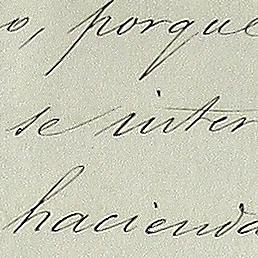 o, porque
se inter
hacienda